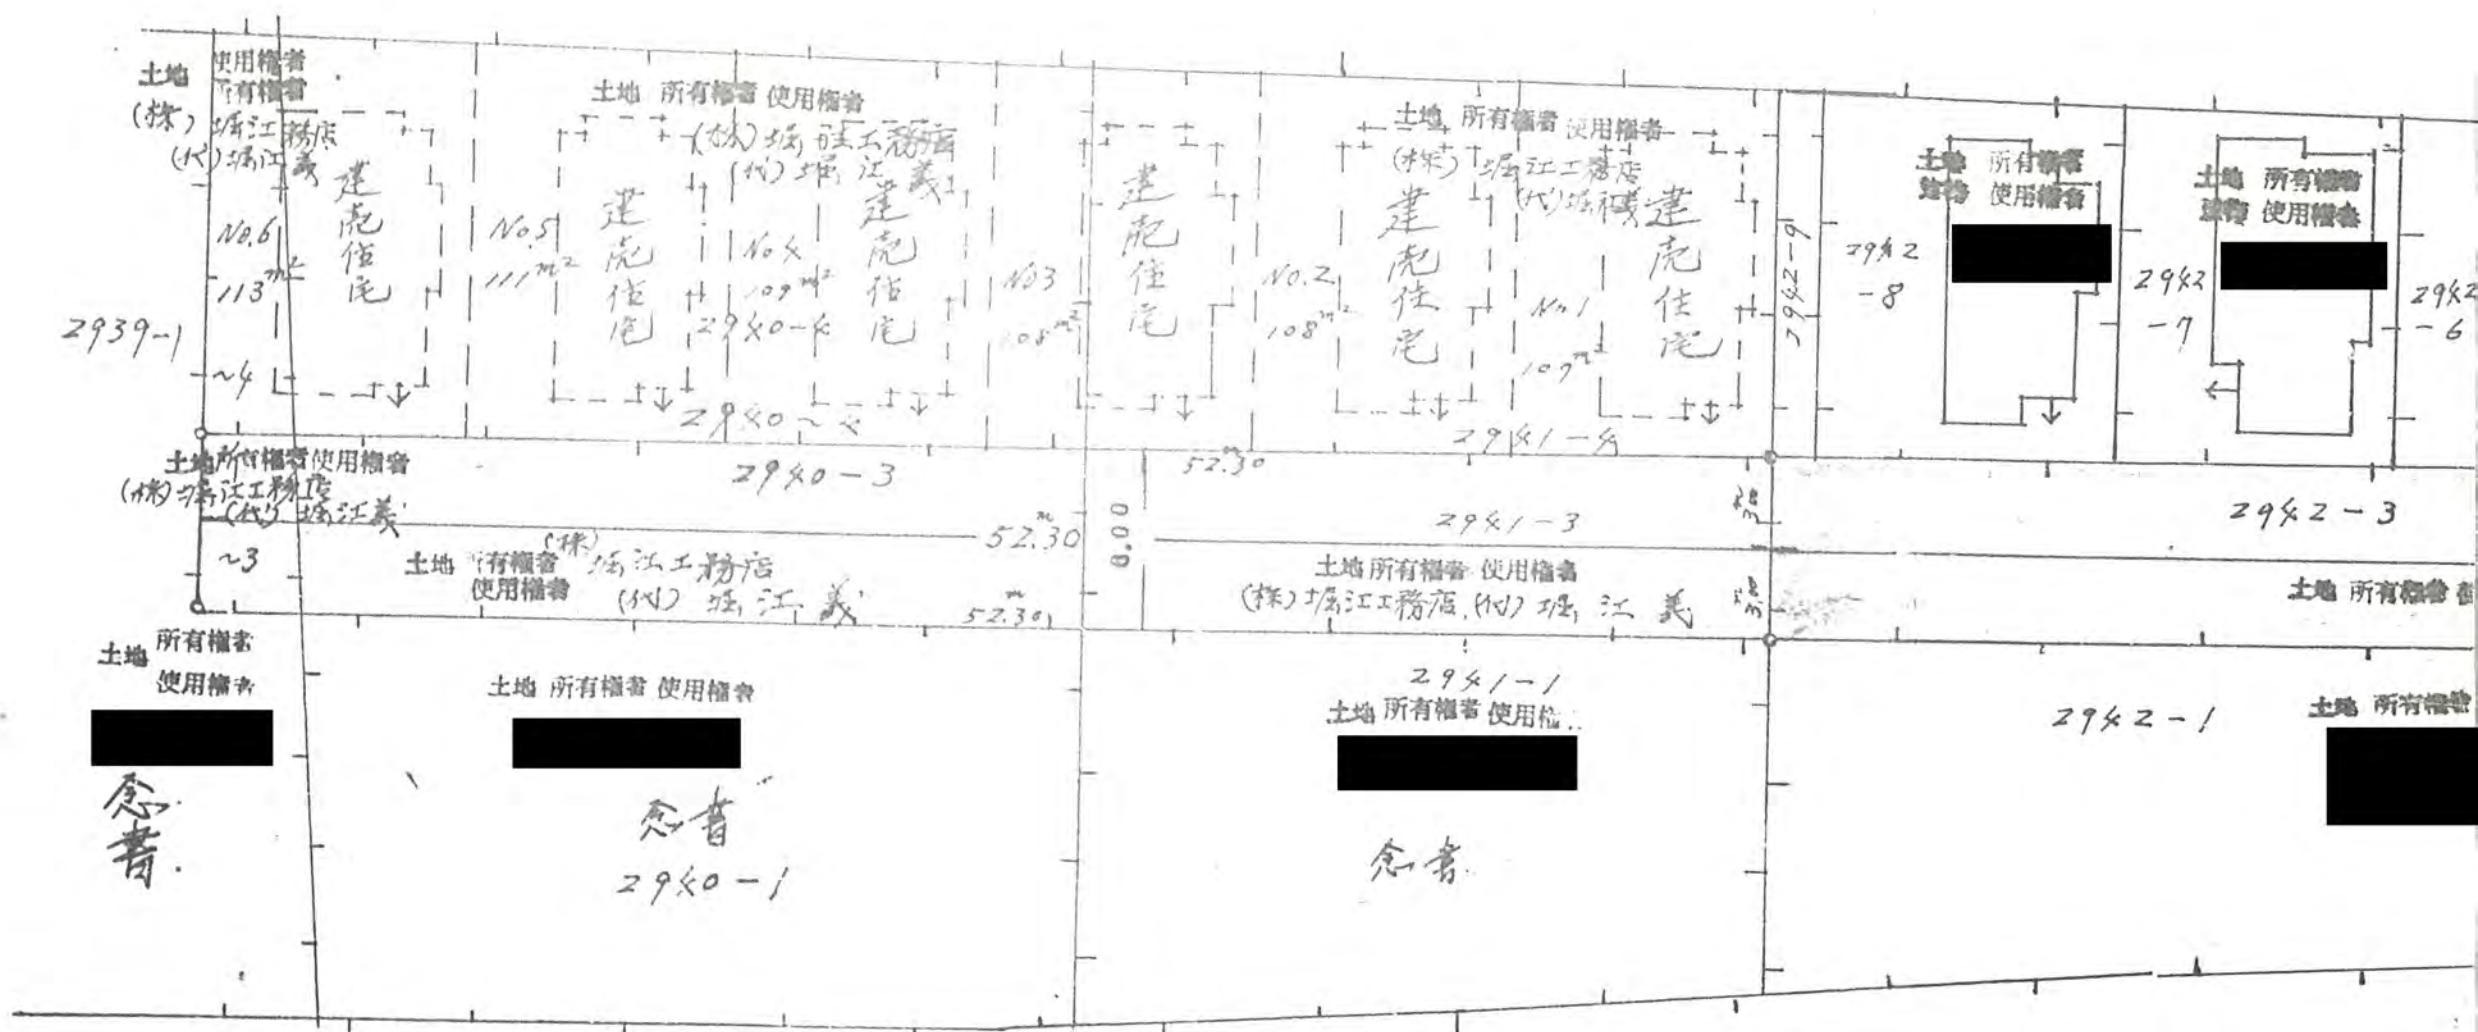 土地
使用権者
所有権者
(株)堀江工務店
(代)堀江義
建売住宅
No.6
113m²
~4
2939-1
土地 所有権者 使用権者
(株)堀江工務店
(代)堀江義
No.5
111m²
建売住宅
No.4
109m²
2940-4
建売住宅
2940~4
No3
108m²
建売住宅
土地 所有権者 使用権者
(株)堀江工務店
(代)堀江義
No.2
108m²
建売住宅
No.1
107m²
建売住宅
2941-4
2942-9
2942
-8
土地 所有権者
建物 使用権者
2942
-7
土地 所有権者
建物 使用権者
2942
-6
土地所有権者使用権者
(株)堀江工務店
(代)堀江義
~3
2940-3
52.30m
52.30m
52.30m
6.00
2941-3
2942-3
土地 所有権者
使用権者
(株)堀江工務店
(代)堀江義
土地所有権者 使用権者
(株)堀江工務店.(代)堀江義
土地 所有権者
土地
所有権者
使用権者
念書.
土地 所有権者 使用権者
念書
2940-1
2941-1
土地所有権者 使用権
念書.
2942-1
土地 所有権者